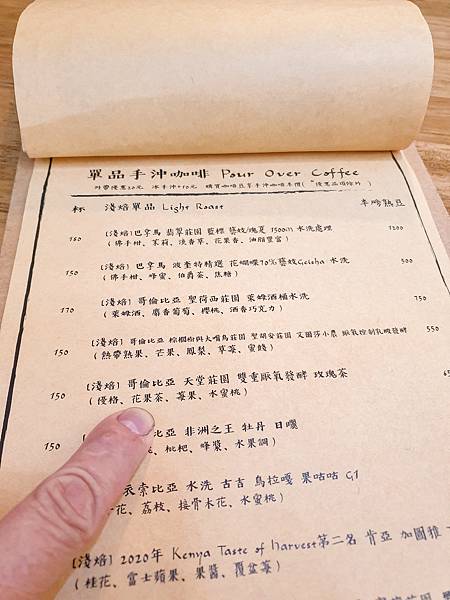 單品手沖咖啡 Pour Over Coffee
外帶優惠20元 冰手沖+10元 購買咖啡豆享手沖咖啡半價(*優惠品項除外)
杯 淺焙單品 Light Roast 半磅熟豆
180 (淺焙) 巴拿馬 翡翠莊園 藍標 藝妓/瑰夏 1500m 水洗處理 1200
(佛手柑、茉莉、淡香草、花果香、油脂豐富)
150 (淺焙) 巴拿馬 波奎特精選 花蝴蝶70%藝妓Geisha 水洗 500
(佛手柑、蜂蜜、伯爵茶、焦糖)
170 (淺焙) 哥倫比亞 聖荷西莊園 萊姆酒桶水洗 750
(萊姆酒、麝香葡萄、櫻桃、酒香巧克力)
150 (淺焙) 哥倫比亞 棕櫚樹與大嘴鳥莊園 聖胡安莊園 艾图莎小農 厭氧控制乳酸發酵 550
(熱帶熟果、芒果、鳳梨、草莓、蜜餞)
150 (淺焙) 哥倫比亞 天堂莊園 雙重厭氧發酵 玫瑰茶
(優格、花果茶、莓果、水蜜桃)
150 比亞 非洲之王 牡丹 日曬
、枇杷、蜂漿、水果調)
衣索比亞 水洗 古吉 烏拉嘎 果咕咕 G1
花、荔枝、接骨木花、水蜜桃)
(淺焙) 2020年 Kenya Taste of Harvest第二名 肯亞 加圖雅
(桂花、富士蘋果、果醬、覆盆莓)